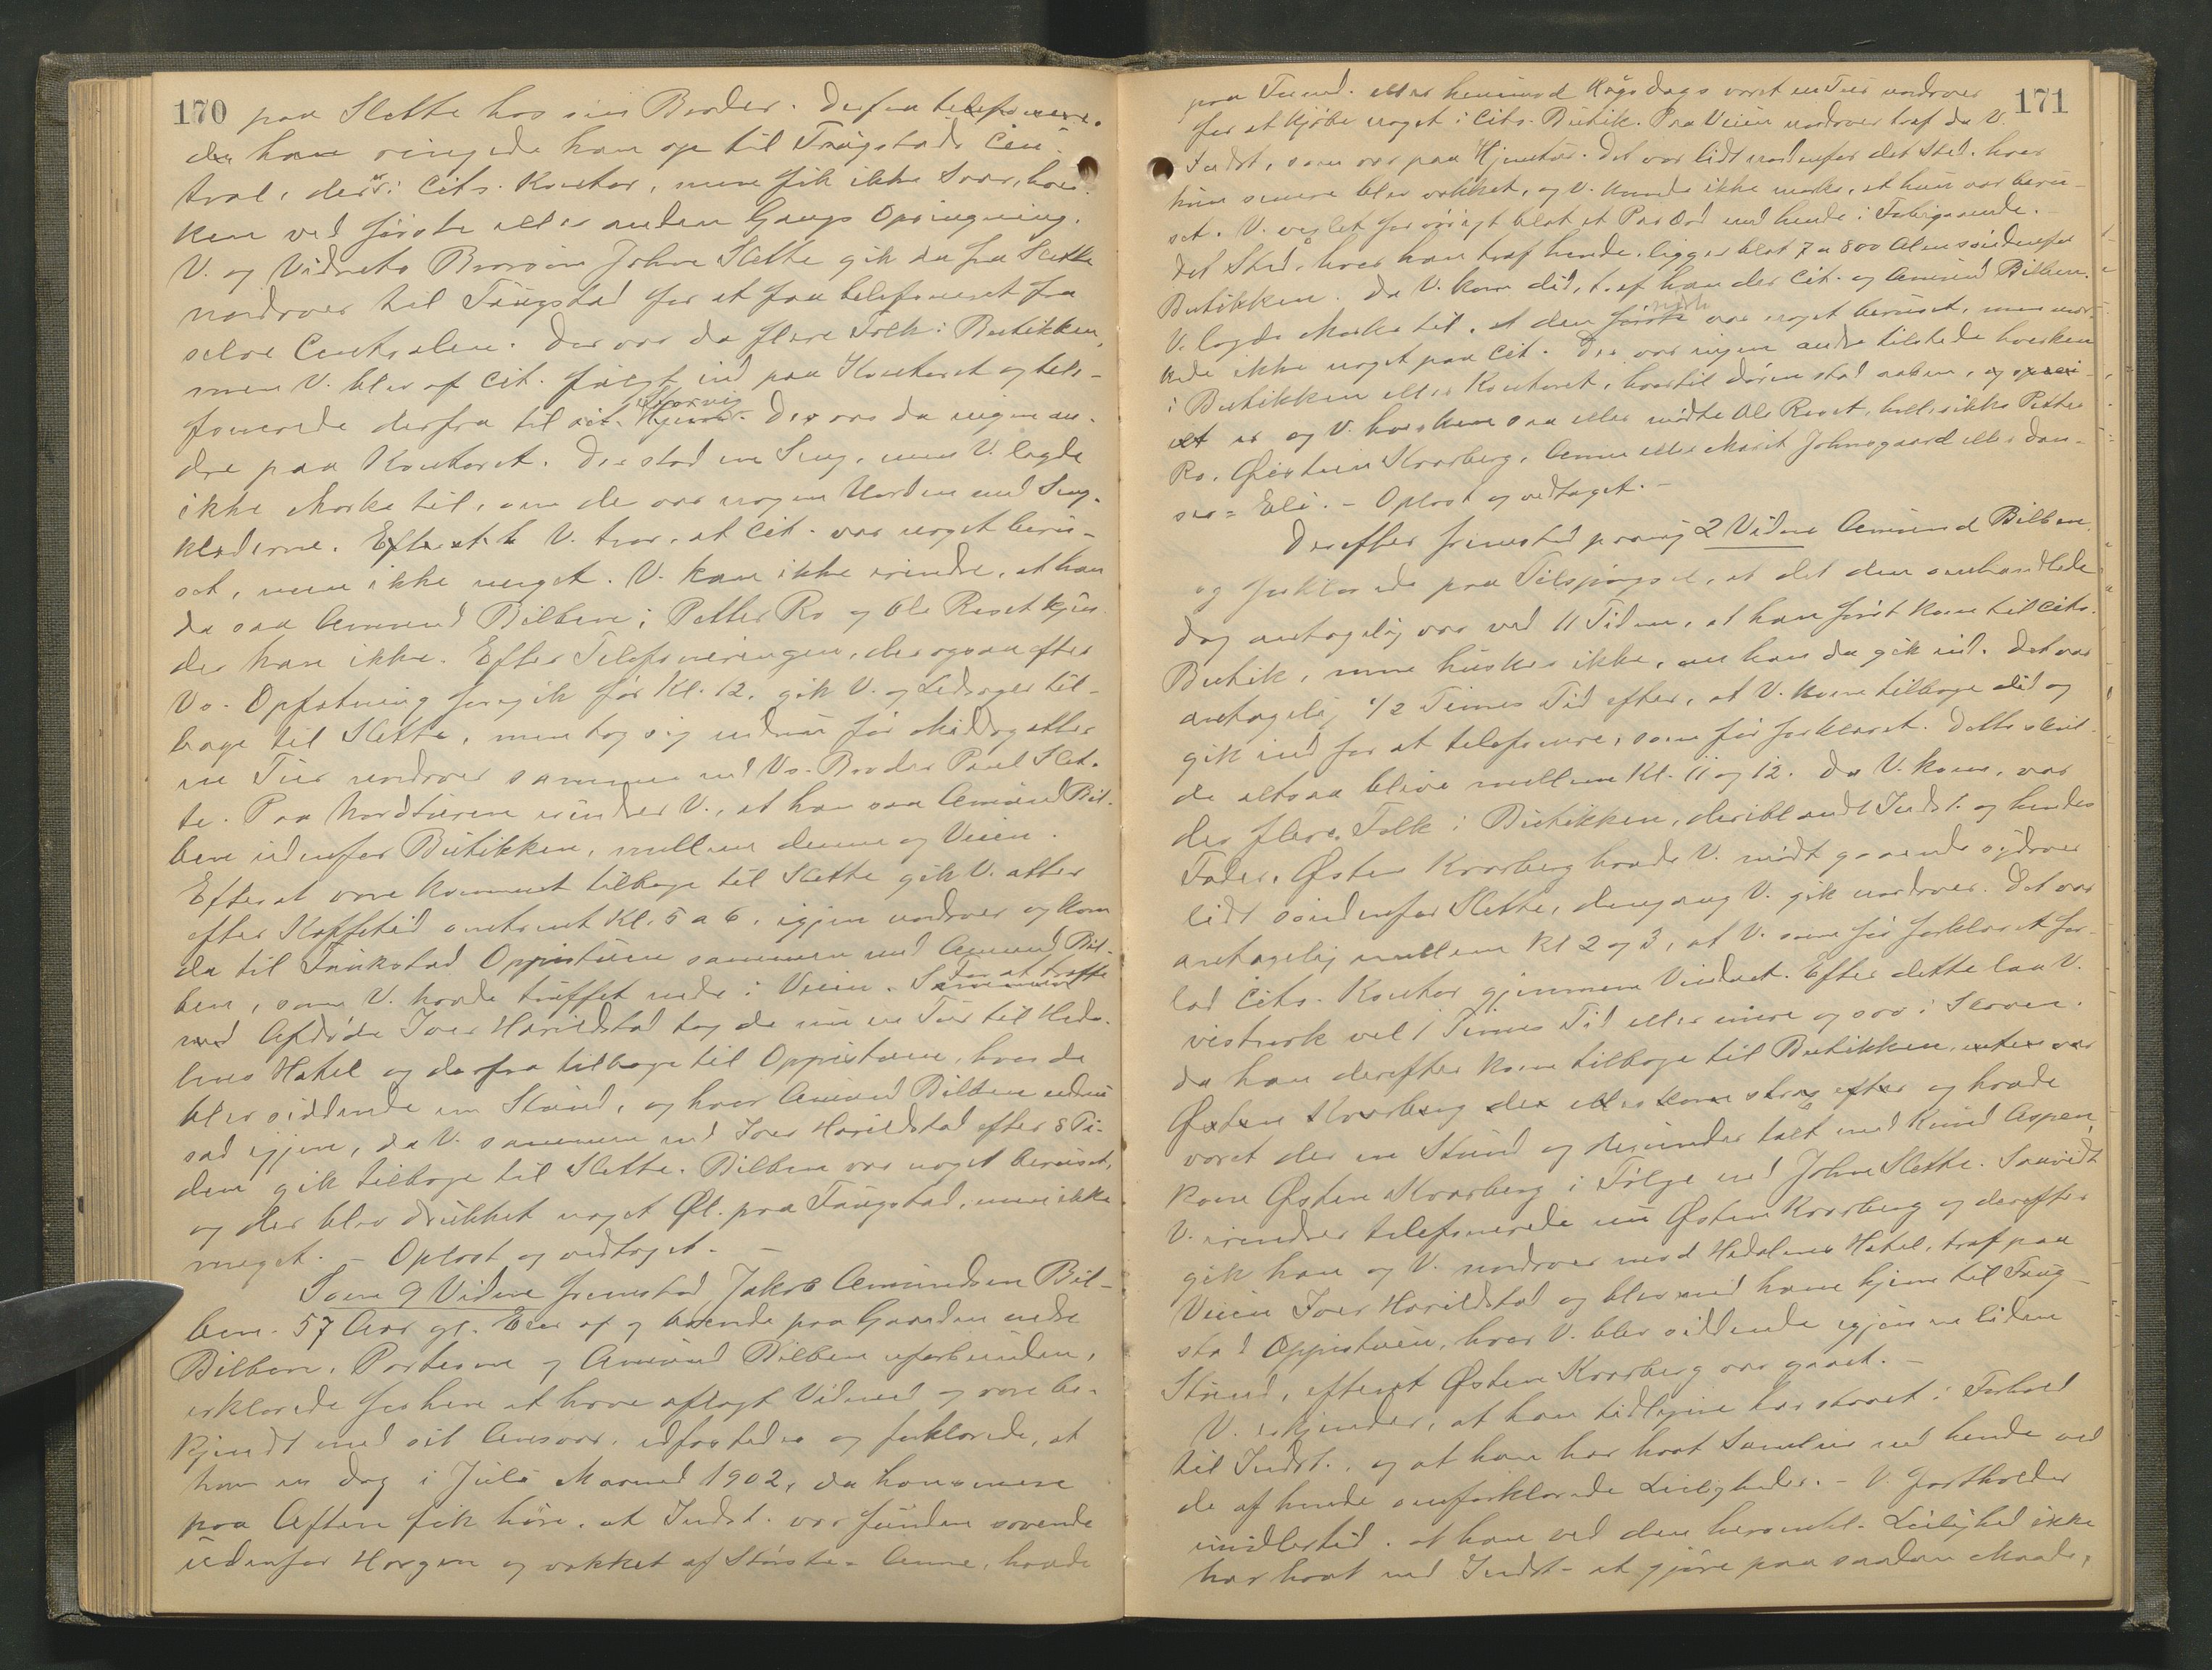 170
paa Slette hos sin Broder. Derfra telefonere-
de han ringede han op til Traagstads Cen-
tral, der er i Cits. Kontor, men fik ikke Svar, hver-
ken ved første eller anden Gangs Opringning.
V. og Vidnets Brorsøn John Slette gik da fra Slette
nordover til Taugstad for at faa telefoneret fra
selve Centralen. Der var da flere Folk i Butikken,
men V. blev af Cit. fulgt ind paa Kontoret og tele-
fonerede derfra til sit Hjem. Der var da ingen an-
dre paa Kontoret. Der stod en Seng, men V. lagde
ikke Mærke til, om der var nogen Uorden med Seng-
klæderne. Efterat V. tror, at Cit. var noget beru-
set, men ikke meget. V. kan ikke erindre, at han
da saa Amund Bilben; Petter Ro og Ole Reset kjen-
der han ikke. Efter Telefoneringen, der ogsaa efter
Vs. Opfatning foregik før Kl. 12, gik V. og Ledsager til-
bage til Slette, men tog sig endnu før Middag atter
en Tur nordover sammen med Vs. Broder Paul Slet-
te. Paa Nordturen erindrer V., at han saa Amund Bil-
ben udenfor Butikken, mellem denne og Veien.
Efterat være kommet tilbage til Slette gik V. atter
efter Kaffetid omtrent Kl. 5 a 6, igjen nordover og kom
da til Taukstad Oppistuen sammen med Amund Bil-
ben, som V. havde truffet nede i Veien. Sammen For at træffe
med Afdøde Iver Harildstad tog de nu en Tur til Heda-
lens Hotel og derfra tilbage til Oppistuen, hvor de
blev siddende en Stund, og hvor Amund Bilben endnu
sad igjen, da V. sammen med Iver Harildstad efter 8 Ti-
den gik tilbage til Slette. Bilben var noget beruset,
og der blev drukket noget Øl paa Taugstad, men ikke
meget. – Oplæst og vedtaget. –
Som 9 Vidne fremstod Jakob Amundsen Bil-
ben. 57 Aar gl. Eier af og boende paa Gaarden nedre
Bilben. Parterne og Amund Bilben uforbunden,
erklærede før her at have aflagt Vidneed og være be-
kjendt med sit Ansvar, edfæstedes og forklarede, at
han en Dag i Juli Maaned 1902, da han senere
paa Aften fik høre, at Indst. var funden sovende
udenfor Horgen og vækket af Største-Anne, havde
171
paa Formd. eller henimod Høgsdags været en Tur nordover
for at kjøbe noget i Cits. Butik. Paa Veien nordover traf da V.
Indst., som var paa Hjemtur. Det var lidt nordenfor det Sted, hvor
hun senere blev vækket, og V. kunde ikke mærke, at hun var beru-
set. V. vexlet for øvrigt blot et Par Ord med hende i Forbigaaende.
Det Sted, hvor han traf hende, ligger blot 7 a 800 Alen søndenfor
Butikken. Da V. kom did, traf han der Cit. og Amund Bilben.
V. lagde Mærke til, at den første var noget beruset, men mær-
kede ikke noget paa Cit. Der var ingen andre tilstede hverken
i Butikken eller Kontoret, hvortil Døren stod aaben, og speci-
elt er og V. hverken saa eller mødte Ole Reset, heller ikke Petter
Ro, Øistein Kvarberg, Anne eller Marit Johnsgaard eller Dan-
ser-Eli. – Oplæst og vedtaget. –
Derefter fremstod paany 2 Vidne Amund Bilben
og forklarede paa Tilspørgsel, at det den omhandlede
Dag antagelig var ved 11 Tiden, at han først kom til Cits.
Butik, men husker ikke, om han da gik ind. Det var
antagelig ½ Times Tid efter, at V. kom tilbage did og
gik ind for at telefonere, som før forklaret. Dette skul-
de altsaa blive mellem Kl. 11 og 12. Da V. kom, var
der flere Folk i Butikken, deriblandt Indst. og hendes
Fader. Østen Kvarberg havde V. mødt gaaende sydover
lidt søndenfor Slette, dengang V. gik nordover. Det var
antagelig mellem Kl 2 og 3, at V. som før forklaret for-
lod Cits. Kontor gjennem Vinduet. Efter dette laa V.
vistnok vel 1 Times Tid eller mere og sov i Skoven.
Da han derefter kom tilbage til Butikken, enten var
Østen Kvarberg der eller kom strax efter og havde
været der en Stund og derunder talt med Knud Aspen,
kom Østen Kvarberg i Følge med John Slette. Saavidt
V. erindrer telefonerede nu Østen Kvarberg og derefter
gik han og V. nordover mod Hedalens Hotel, traf paa
Veien Iver Harildstad og blev med ham hjem til Taug-
stad Oppistuen, hvor V. blev siddende igjen en liden
Stund, efterat Østen Kvarberg var gaaet. –
V. erkjender, at han tidligere har staaet i Forhold
til Indst., og at han har havt Samleie med hende ved
de af hende omforklarede Leiligheder. – V. fastholder
imidlertid, at han ved den heromhl. Leilighed ikke
har havt med Indst. at gjøre paa saadan Maade,